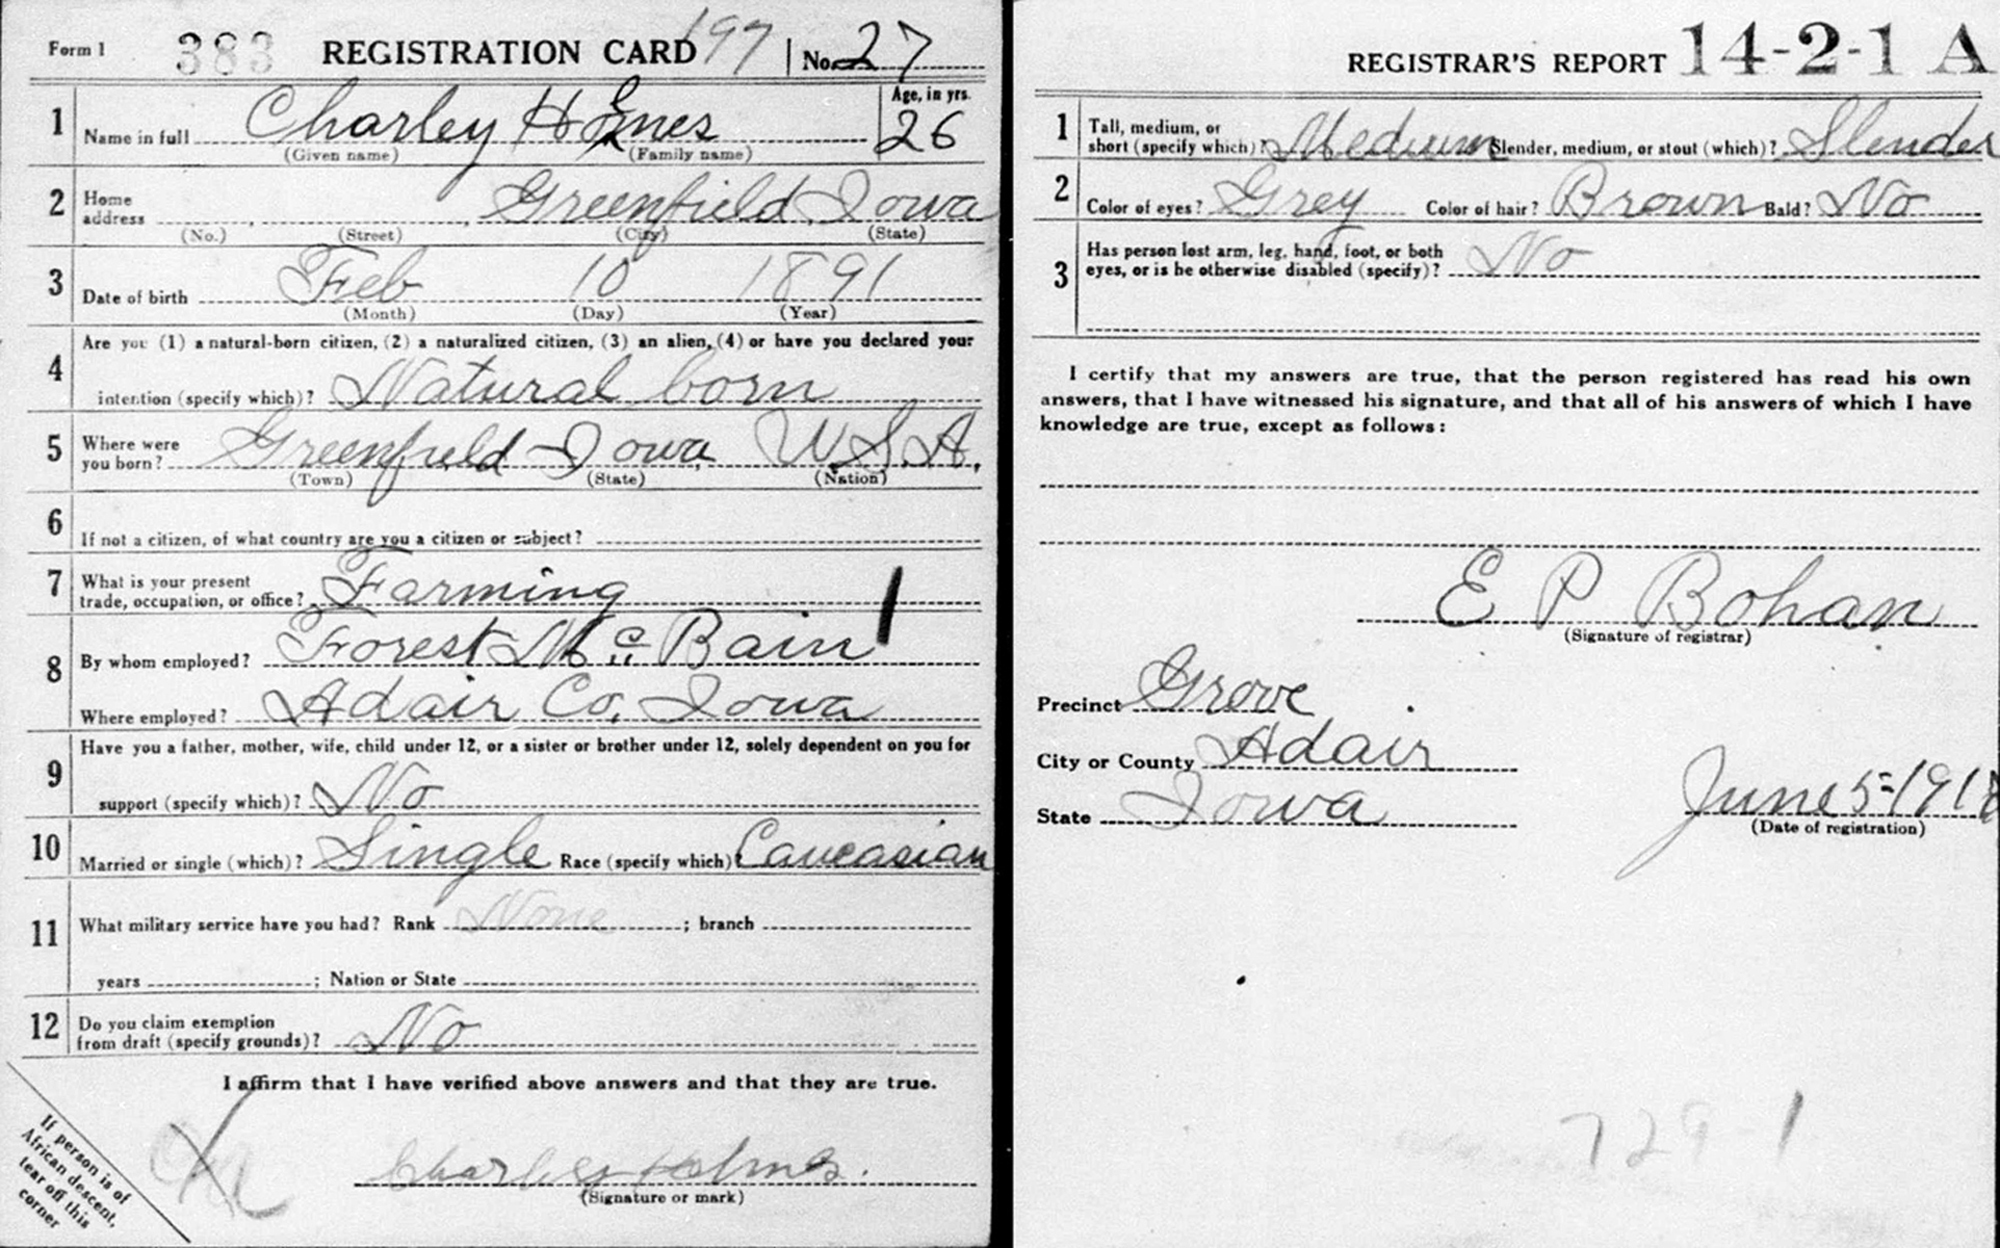 Form 1 383 REGISTRATION CARD 197 No. 27
1 Name in full Charley Holmes Age, in yrs. 26
(Given name) (Family name)
2 Home address Greenfield Iowa
(No.) (Street) (City) (State)
3 Date of birth Feb 10 1891
(Month) (Day) (Year)
4 Are you (1) a natural-born citizen, (2) a naturalized citizen, (3) an alien, (4) or have you declared your
intention (specify which)? Natural born
5 Where were you born? Greenfield Iowa U.S.A.
(Town) (State) (Nation)
6 If not a citizen, of what country are you a citizen or subject?
7 What is your present trade, occupation, or office? Farming
8 By whom employed? Forest McBain
Where employed? Adair Co, Iowa
9 Have you a father, mother, wife, child under 12, or a sister or brother under 12, solely dependent on you for
support (specify which)? No
10 Married or single (which)? Single Race (specify which)? Caucasian
11 What military service have you had? Rank None ; branch
years ; Nation or State
12 Do you claim exemption from draft (specify grounds)? No
I affirm that I have verified above answers and that they are true.
Charley Holmes.
(Signature or mark)
If person is of
African descent,
tear off this
corner
REGISTRAR'S REPORT 14-2-1 A
1 Tall, medium, or short (specify which)? Medium Slender, medium, or stout (which)? Slender
2 Color of eyes? Grey Color of hair? Brown Bald? No
3 Has person lost arm, leg, hand, foot, or both eyes, or is he otherwise disabled (specify)? No
I certify that my answers are true, that the person registered has read his own
answers, that I have witnessed his signature, and that all of his answers of which I have
knowledge are true, except as follows:
E P Bohan
(Signature of registrar)
Precinct Grove
City or County Adair
State Iowa June 5-1917
(Date of registration)
729 1